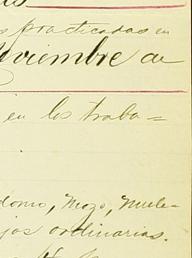 s practicadas en
oviembre de
en los traba=
domo, Mozo, Mule-
jos ordinarias.